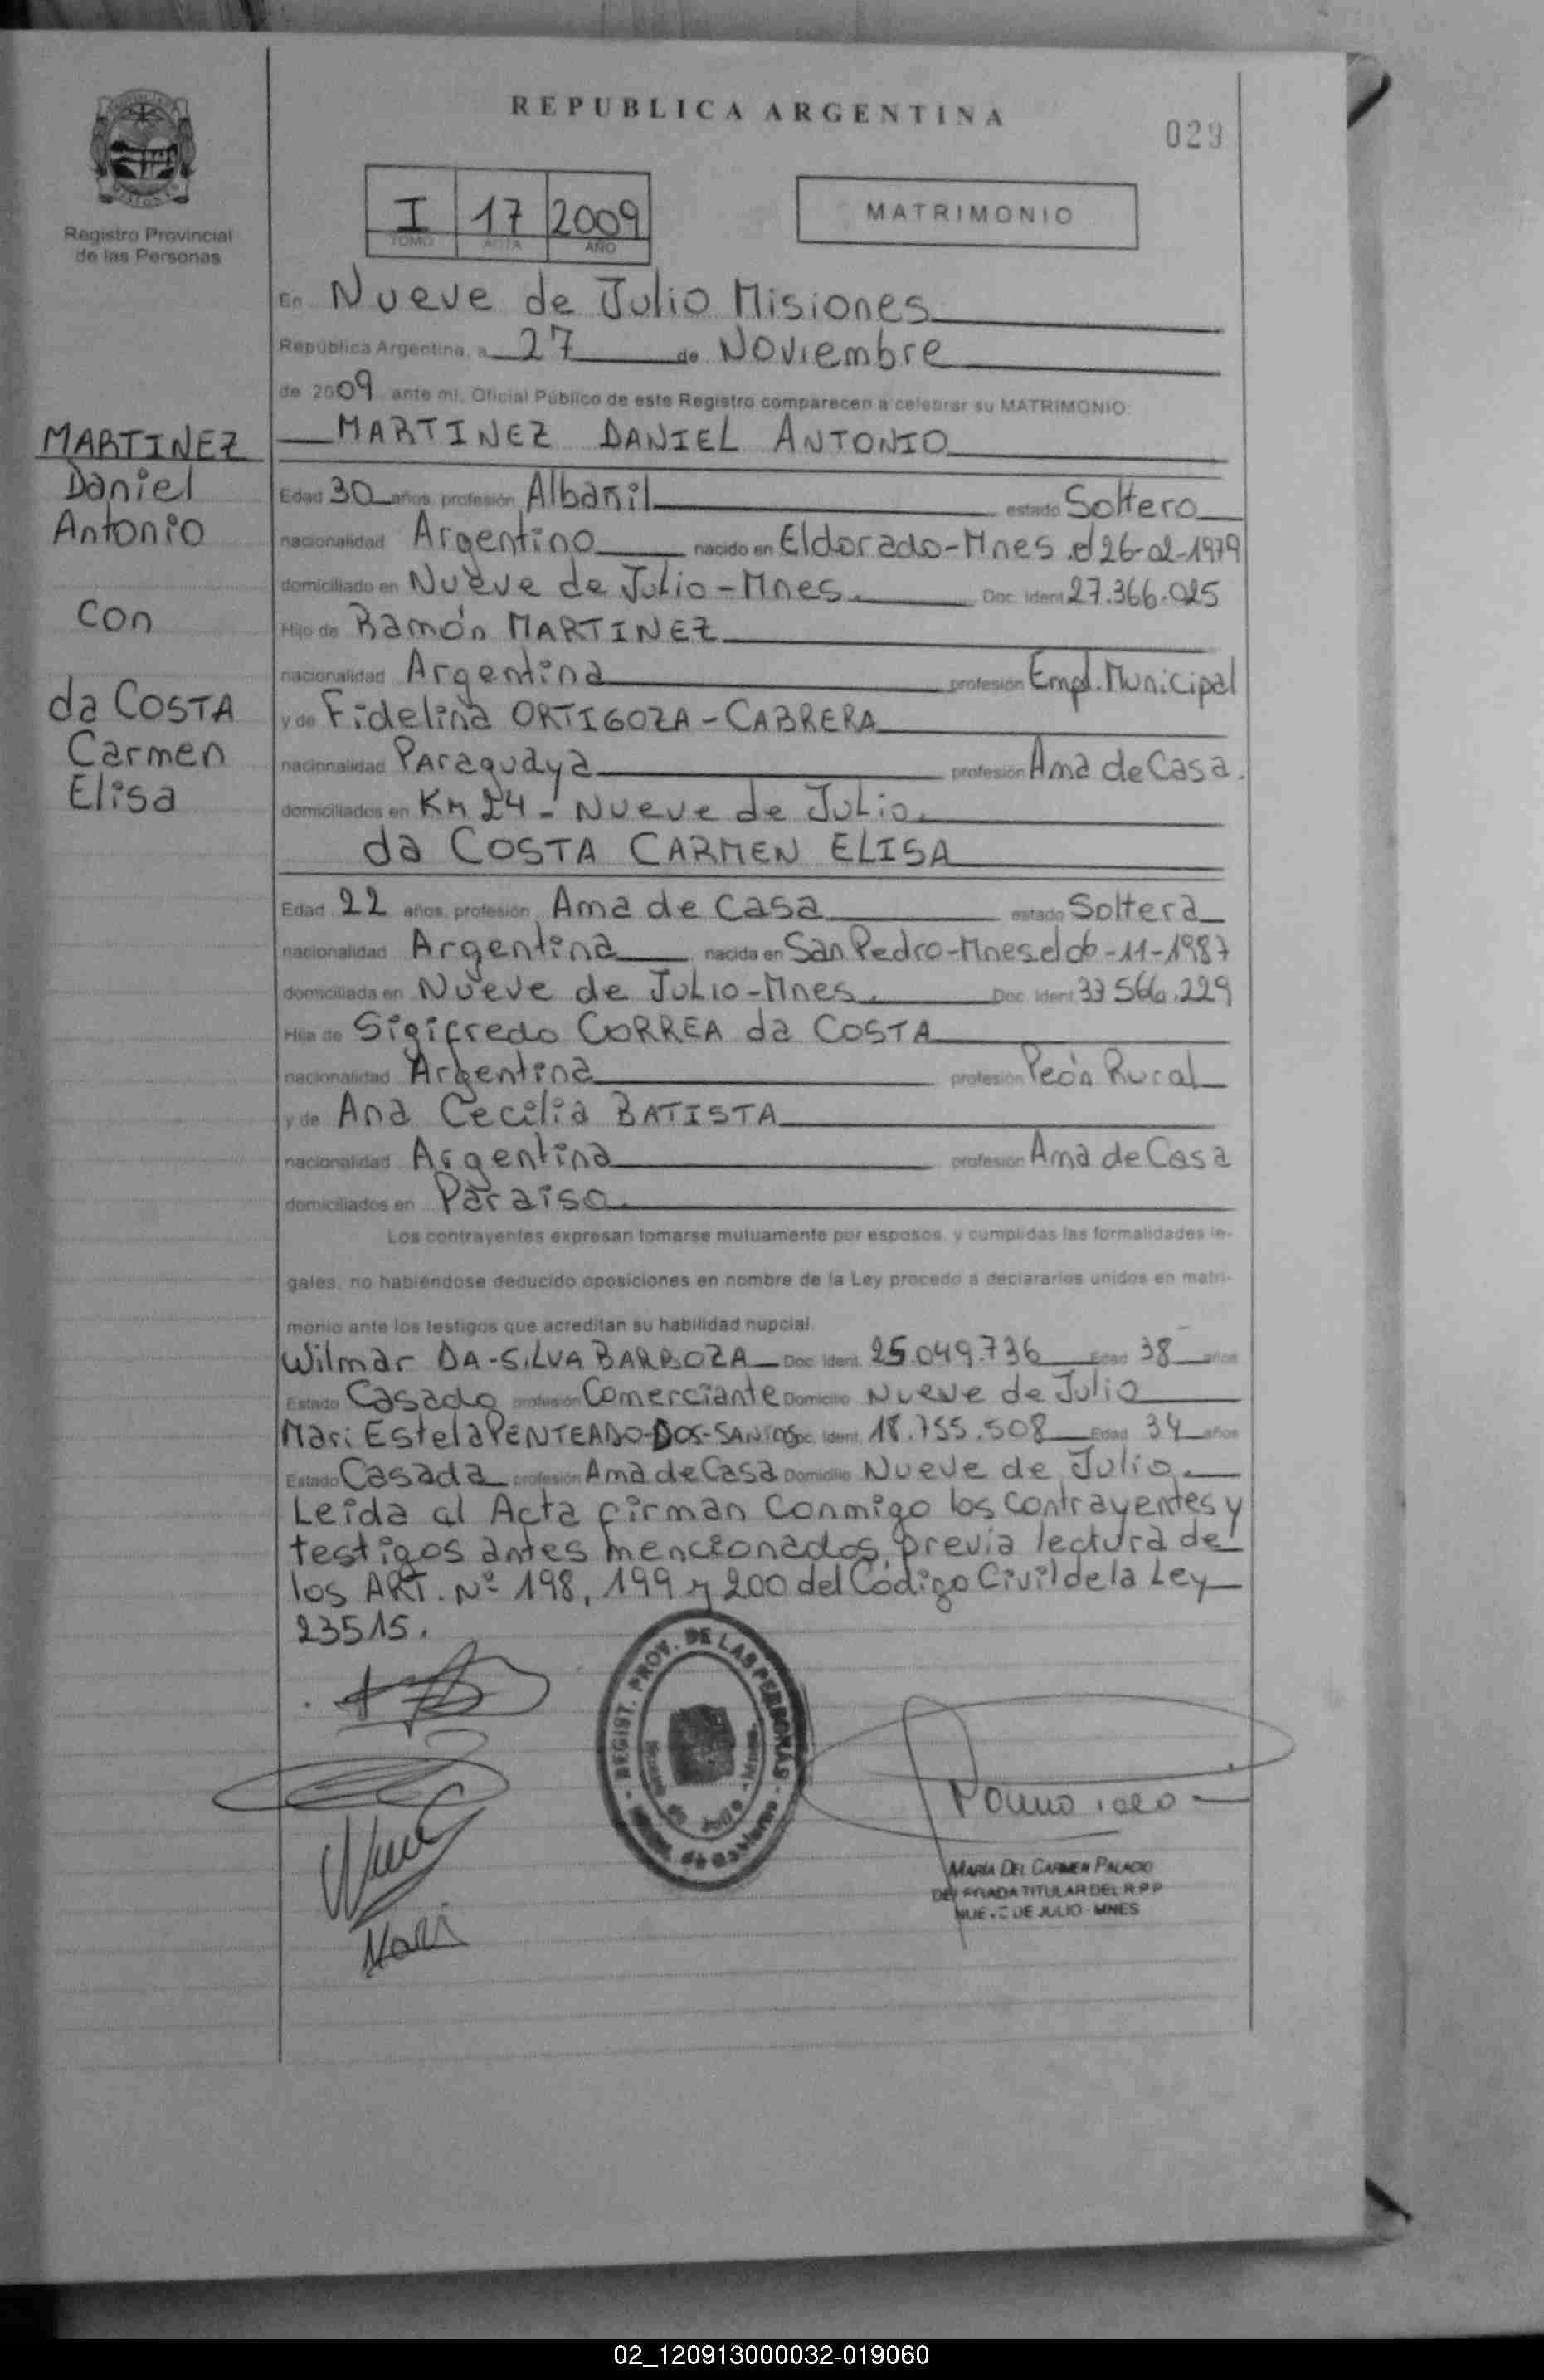 REPUBLICA ARGENTINA
029
Registro Provincial
de las Personas
I 17 2009
TOMO ACTA AÑO
MATRIMONIO
En Nueve de Julio Misiones
República Argentina, a 27 de Noviembre
de 2009 ante mi, Oficial Público de este Registro comparecen a celebrar su MATRIMONIO:
MARTINEZ DANIEL ANTONIO
MARTINEZ
Daniel
Antonio
con
da COSTA
Carmen
Elisa
Edad 30 años, profesión Albañil estado Soltero
nacionalidad Argentino nacido en Eldorado-Mnes el 26-02-1979
domiciliado en Nueve de Julio-Mnes. Doc. Ident. 27.366.025
Hijo de Ramón MARTINEZ
nacionalidad Argentina profesión Empl. Municipal
y de Fidelina ORTIGOZA-CABRERA
nacionalidad Paraguaya profesión Ama de Casa.
domiciliados en Km 24- Nueve de Julio.
da COSTA CARMEN ELISA
Edad 22 años, profesión Ama de Casa estado Soltera
nacionalidad Argentina nacida en San Pedro-Mnes el 06-11-1987
domiciliada en Nueve de Julio-Mnes. Doc. Ident. 33.566.229
Hija de Sigifredo CORREA da COSTA
nacionalidad Argentina profesión Peón Rural
y de Ana Cecilia BATISTA
nacionalidad Argentina profesión Ama de Casa
domiciliados en Paraiso.
Los contrayentes expresan tomarse mutuamente por esposos, y cumplidas las formalidades le-
gales, no habiéndose deducido oposiciones en nombre de la Ley procedo a declararlos unidos en matri-
monio ante los testigos que acreditan su habilidad nupcial.
Wilmar DA-SILVA BARBOZA Doc. Ident. 25.049.736 Edad 38 años
Estado Casado profesión Comerciante Domicilio Nueve de Julio
Mari Estela PENTEADO-DOS-SANTOS Doc. Ident. 18.755.508 Edad 34 años
Estado Casada profesión Ama de Casa Domicilio Nueve de Julio.
Leida al Acta firman conmigo los contrayentes y
testigos antes mencionados, previa lectura de
los ART. Nº 198, 199 y 200 del Código Civil de la Ley
23515.
REGIST. PROV. DE LAS PERSONAS
Julio - Mnes.
Mari
MARÍA DEL CARMEN PALACIO
DELEGADA TITULAR DEL R.P.P
NUEVE DE JULIO - MNES
02_120913000032-019060